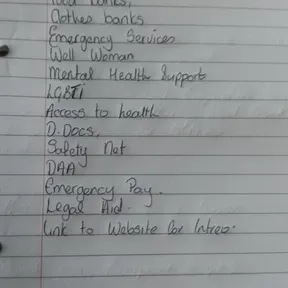 Food banks,
Clothes banks
Emergency Services
Well Woman
Mental Health Supports
LGBTI
Access to health
D.Docs.
Safety Net
DAA
Emergency Pay.
Legal Aid.
Link to Website for Intreo.